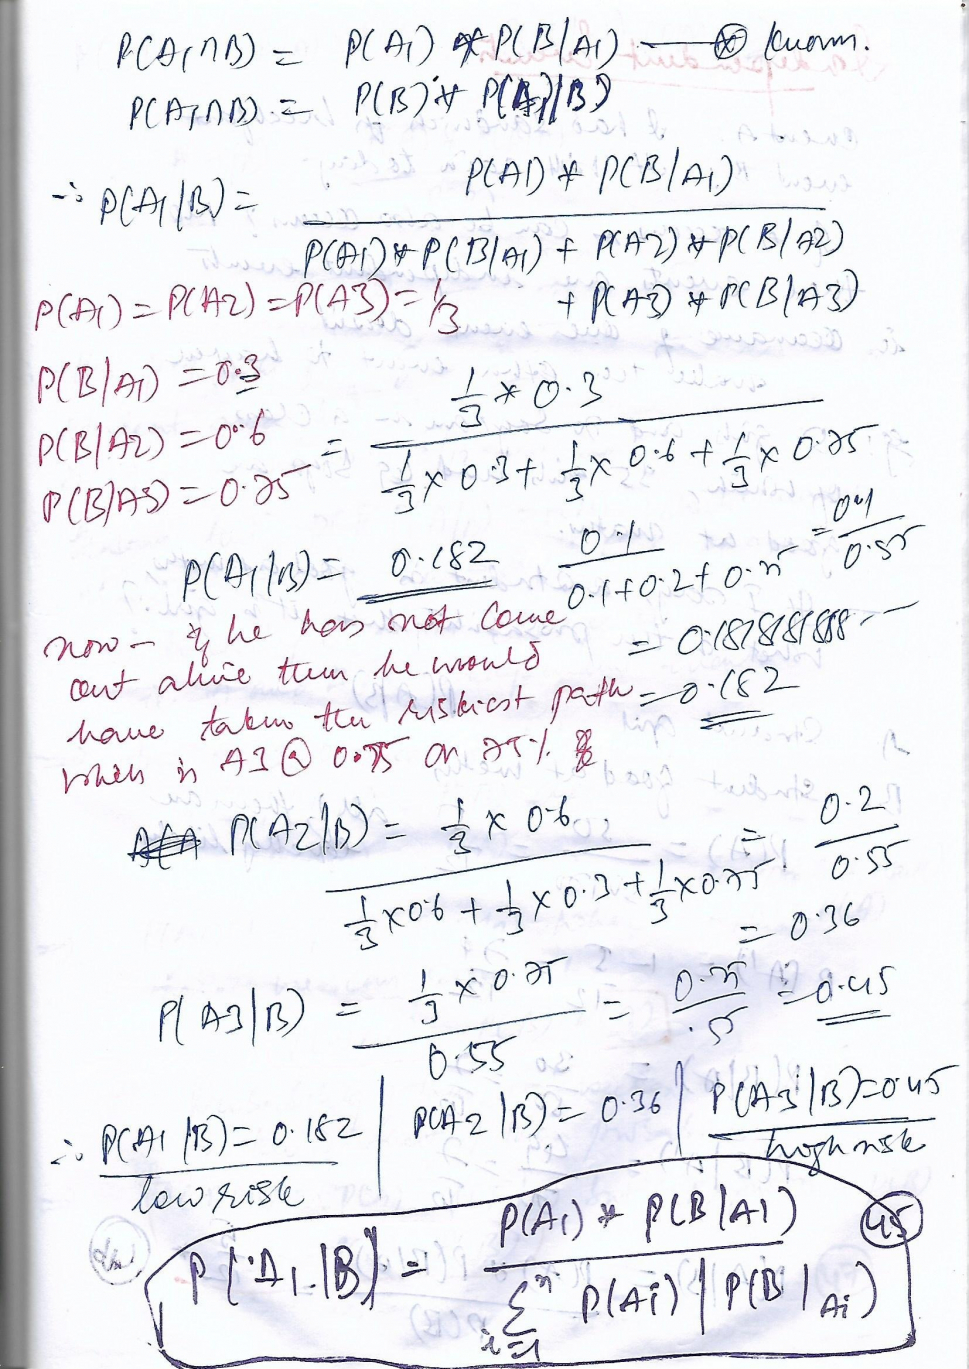 P(A1∩B) = P(A1) * P(B/A1) —— ⊛ known.
P(A1∩B) = P(B) * P(A1/B)
∴ P(A1/B) = P(A1) * P(B/A1)
P(A1) * P(B/A1) + P(A2) * P(B/A2)
+ P(A3) * P(B/A3)
P(A1) = P(A2) = P(A3) = 1/3
P(B/A1) = 0.3
P(B/A2) = 0.6
P(B/A3) = 0.75
= 1/3 * 0.3
1/3 × 0.3 + 1/3 × 0.6 + 1/3 × 0.75
P(A1/B) = 0.182
0.1 / 0.1 + 0.2 + 0.25 = 0.1 / 0.55
= 0.18181818
= 0.182
now – if he has not come
out alive then he would
have taken the riskiest path
which is A3 @ 0.75 or 75%
P(A2/B) = 1/3 × 0.6 = 0.2
1/3 × 0.6 + 1/3 × 0.3 + 1/3 × 0.75 0.55
= 0.36
P(A3/B) = 1/3 × 0.75 = 0.25 = 0.45
0.55 .55
∴ P(A1/B) = 0.182 | P(A2/B) = 0.36 | P(A3/B) = 0.45
low risk high risk
P(A1/B) = P(A1) * P(B/A1)
n Σ i=1 P(Ai) | P(B/Ai)
45